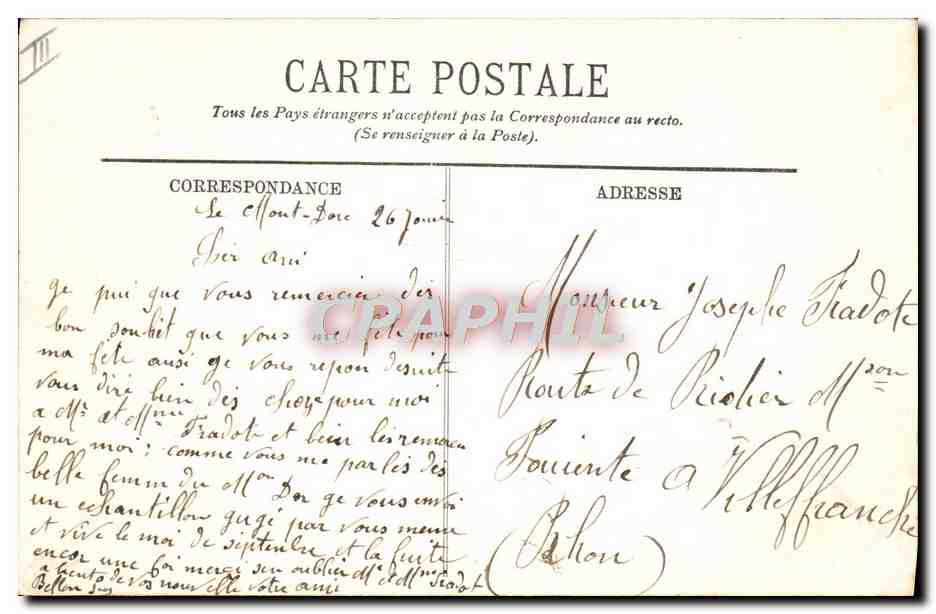 III
CARTE POSTALE
Tous les Pays étrangers n'acceptent pas la Correspondance au recto.
(Se renseigner à la Poste).
CORRESPONDANCE
Le Mont-Dore 26
Cher ami
ge pui que vous remercier des
bon souhèt que vous me fête pour
ma fête ausi ge vous repon desuite
vous diré bien dés chose pour moi
a Mr et Mme Fradote et bein les remercie
pour moi; comme vous me parlés dés
belle femm du Mon Dor ge vous envoi
un echantillon gugé par vous meme
et vive le moi de septenbre et la suite
encor une foi merci sen oublier Mr et Mme Fradot
a biento de vos nouvelle votre ami
ADRESSE
Monsieur Josephe Fradote
Route de Mson
a Villeffranche
(Rhon)
CPAPHIL